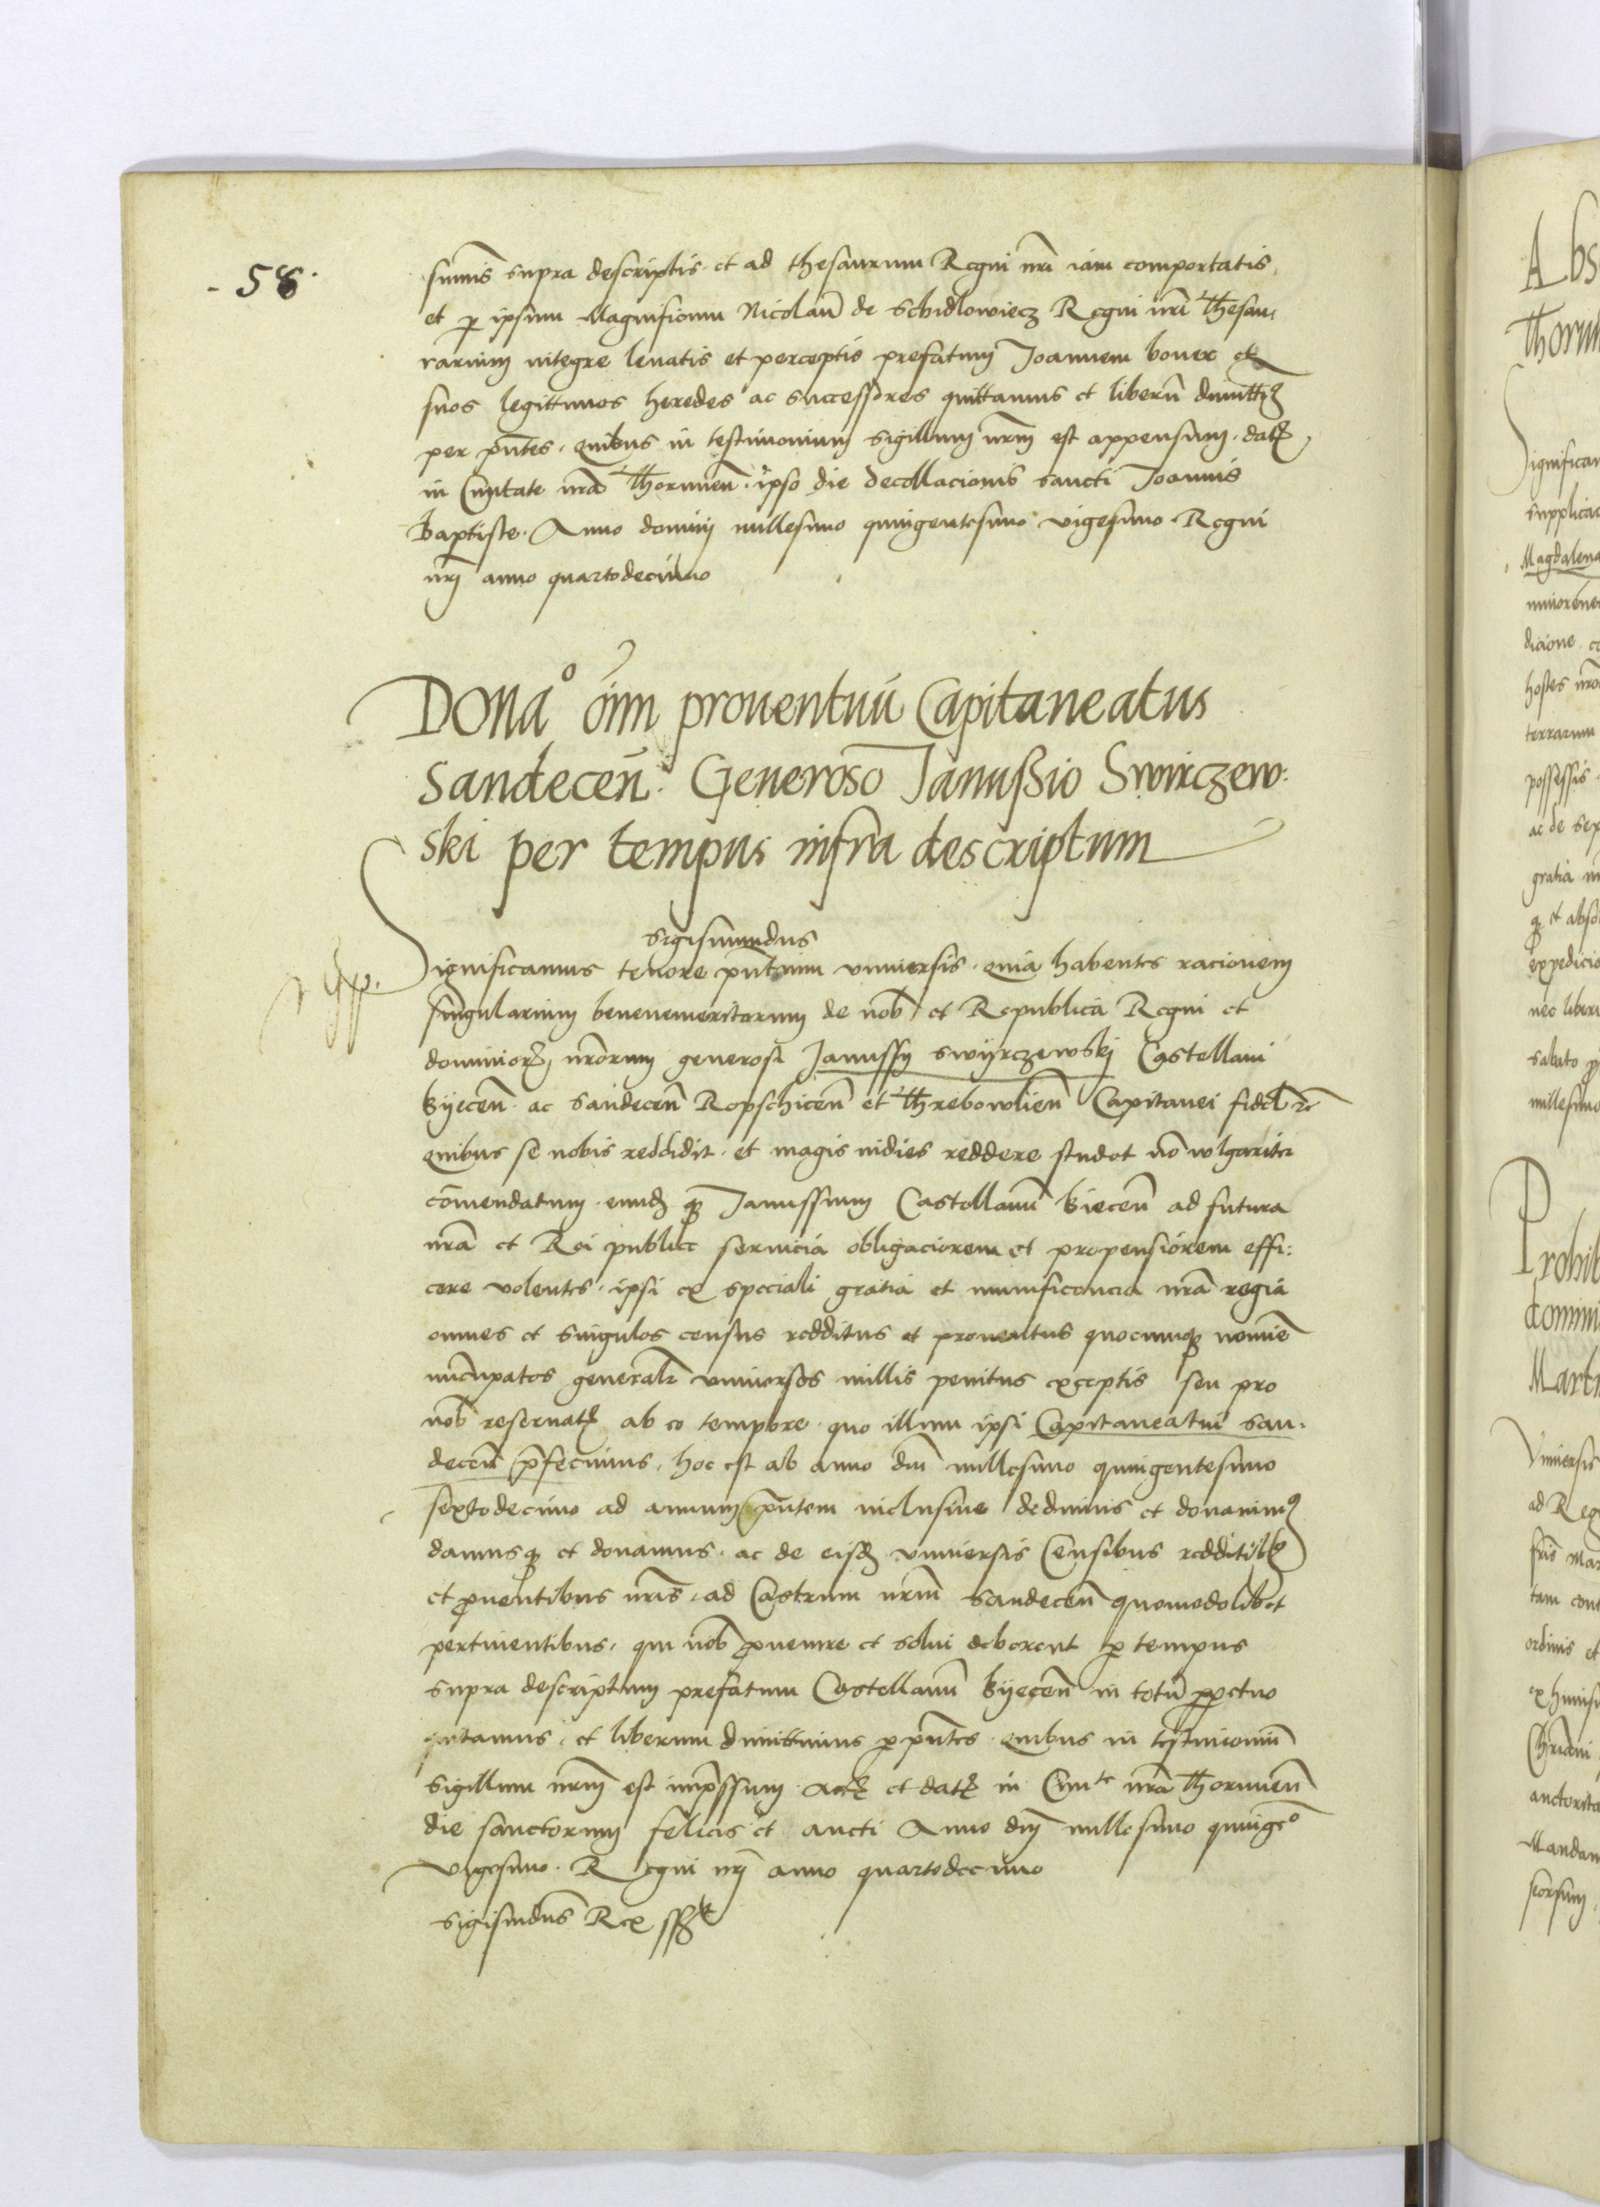 - 58 ·
sum̄is supra descriptis et ad thesaurum Regni nr̄i iam comportatis,
et ꝑ ipsum Magnificum Nicolaū de Schidlowiecz Regni nr̄i Thesau,
rarium integre leuatis et perceptis prefatum Joannem boner et
suos legittimos heredes ac successores quittamus et liberū dimittim9
per pn̄tes · quibus in testimonium sigillum nr̄m est appensum · datꝫ
in Ciuitate nr̄a Thorunen̄ · ipso die decollacionis sancti Joannis
Baptiste · Anno domini millesimo quingentesimo vigesimo · Regni
nr̄j anno quartodecimo
Donao oīm prouentuū Capitaneatus
Sandecen̄ · Generoso Janusßio Swirczew:
ski per tempus infra descriptum
Sigismundus
Significamus tenore pn̄tium vniuersis · quia habentes racionem
singularium benemeritorum de nob̄ et Republica Regni et
dominiorꝫ nr̄orum generosi Janussy swyrczewskj Castellani
Byecen̄ · ac Sandecen̄ Ropschicen̄ et Threbowlien̄ Capitanei fidel̄
quibus se nobis reddidit · et magis indies reddere studet nō wlgariter
cōmendatum · eundꝫ qꝫ Janussium Castellanū Biecen̄ ad futura
nr̄a et Rei publice seruicia obligaciorem et propensiorem effi:
cere volentes · ipsi ex speciali gratia et munificencia nr̄a regia
omnes et singulos census redditus et prouentus quocunqꝫ nomīe
nūcupatos general̄r vniuersos nullis penitus exceptis seu pro
nob̄ reseruatꝫ ab eo tempore · quo illum ipsi Capitaneatui San-
decen̄ p̄fecimus, hoc est ab anno dn̄i millesimo quingentesimo
sextodecimo ad annum pn̄tem inclusiue dedimus et donauim9
damusqꝫ et donamus · ac de eisdꝫ vniuersis Censibus redditibꝫ
et ꝓuentibus nr̄is · ad Castrum nr̄m Sandecen̄ quomodolibet
pertinentibus, qui nob̄ ꝓuenire et solui deberent ꝑ tempus
supra descriptum prefatum Castellanū Byecen̄ in totū ꝑpetuo
qitamus, et liberum dimittimus ꝑ pn̄tes · quibus in testimoniū
sigillum nr̄m est imp̄ssum · Actꝫ et datꝫ in Ciuite nr̄a Thorunen̄
die sanctorum felicis et aucti Anno dn̄j millesimo quingeo
vigesimo · Regni nr̄j anno quartodecimo
Sigismdūs Rex sst